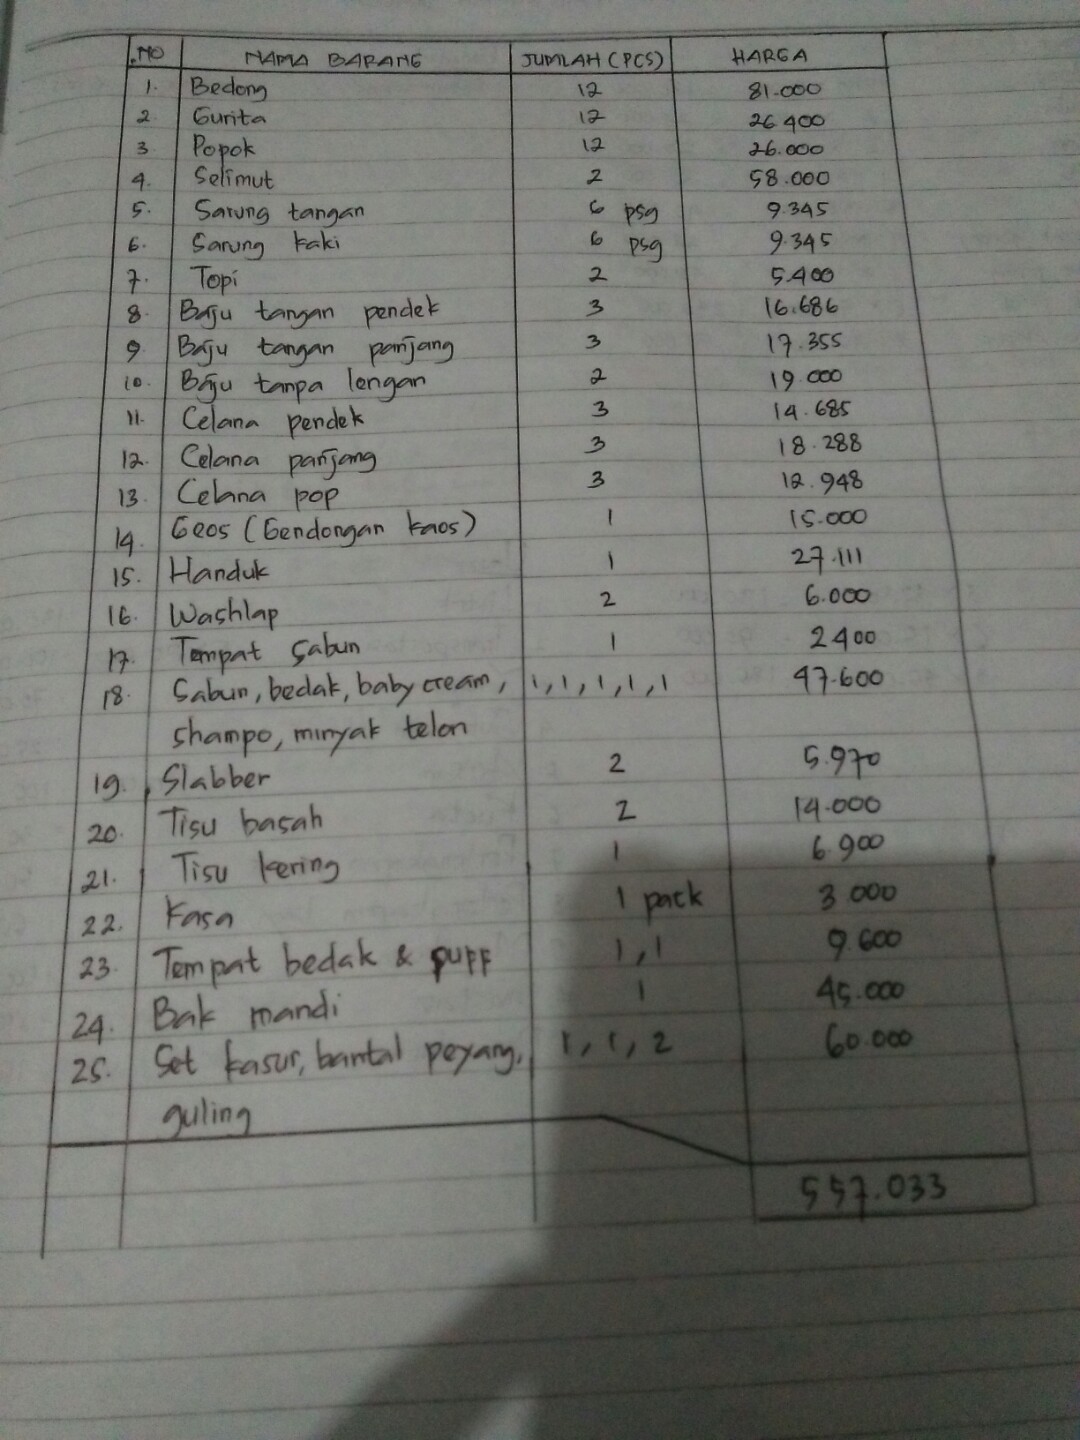 NO NAMA BARANG JUMLAH (PCS) HARGA
1. Bedong 12 81.000
2. Gurita 12 26.400
3. Popok 12 26.000
4. Selimut 2 58.000
5. Sarung tangan 6 psg 9.345
6. Sarung kaki 6 psg 9.345
7. Topi 2 5.400
8. Baju tangan pendek 3 16.686
9. Baju tangan panjang 3 17.355
10. Baju tanpa lengan 2 19.000
11. Celana pendek 3 14.685
12. Celana panjang 3 18.288
13. Celana pop 3 12.948
14. Geos (Gendongan kaos) 1 15.000
15. Handuk 1 27.111
16. Washlap 2 6.000
17. Tempat sabun 1 2400
18. Sabun, bedak, baby cream, 1,1,1,1,1 47.600
shampo, minyak telon
19. Slabber 2 5.970
20. Tisu basah 2 14.000
21. Tisu kering 1 6.900
22. Kasa 1 pack 3.000
23. Tempat bedak & puff 1,1 9.600
24. Bak mandi 1 45.000
25. Set kasur, bantal peyang, 1, 1, 2 60.000
guling
557.033